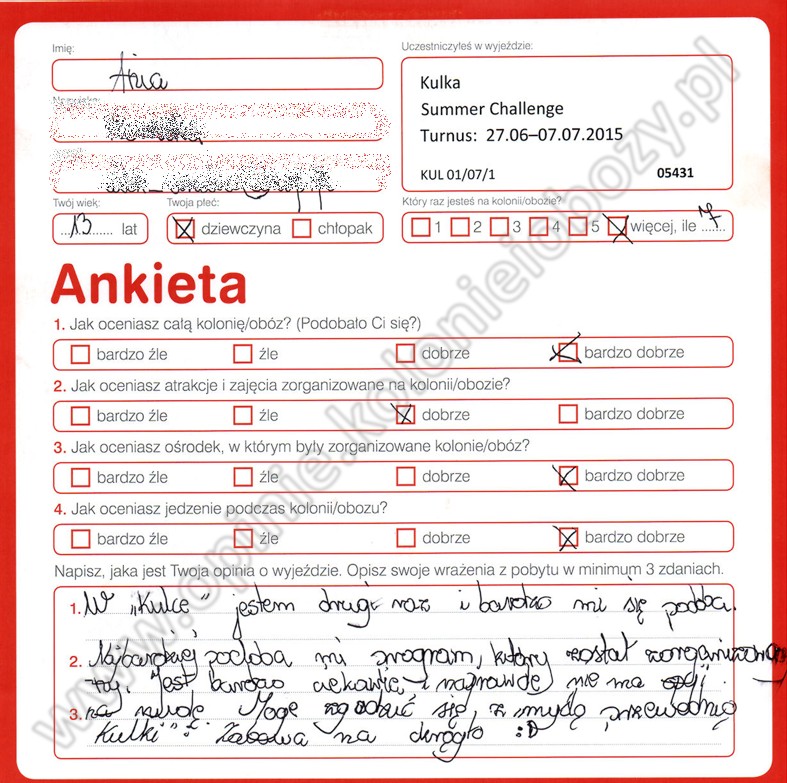 Imię:
Ania
Uczestniczyłeś w wyjeździe:
Kulka
Summer Challenge
Turnus: 27.06–07.07.2015
KUL 01/07/1 05431
Twój wiek:
13 lat
Twoja płeć:
dziewczyna chłopak
Który raz jesteś na kolonii/obozie?
1 2 3 4 5 więcej, ile
Ankieta
1. Jak oceniasz całą kolonię/obóz? (Podobało Ci się?)
bardzo źle źle dobrze bardzo dobrze
2. Jak oceniasz atrakcje i zajęcia zorganizowane na kolonii/obozie?
bardzo źle źle dobrze bardzo dobrze
3. Jak oceniasz ośrodek, w którym były zorganizowane kolonie/obóz?
bardzo źle źle dobrze bardzo dobrze
4. Jak oceniasz jedzenie podczas kolonii/obozu?
bardzo źle źle dobrze bardzo dobrze
Napisz, jaka jest Twoja opinia o wyjeździe. Opisz swoje wrażenia z pobytu w minimum 3 zdaniach.
1. W „Kulce" jestem drugi raz i bardzo mi się podoba.
2. Najbardziej podoba mi program, który został zorganizowany
tu. Jest bardzo ciekawie, i naprawdę nie ma
3. na nudę. Mogę zgodzić się, z myślą przewodnią
Kulki": Zabawa na okrągło :D
www.opinie.kolonieiobozy.pl